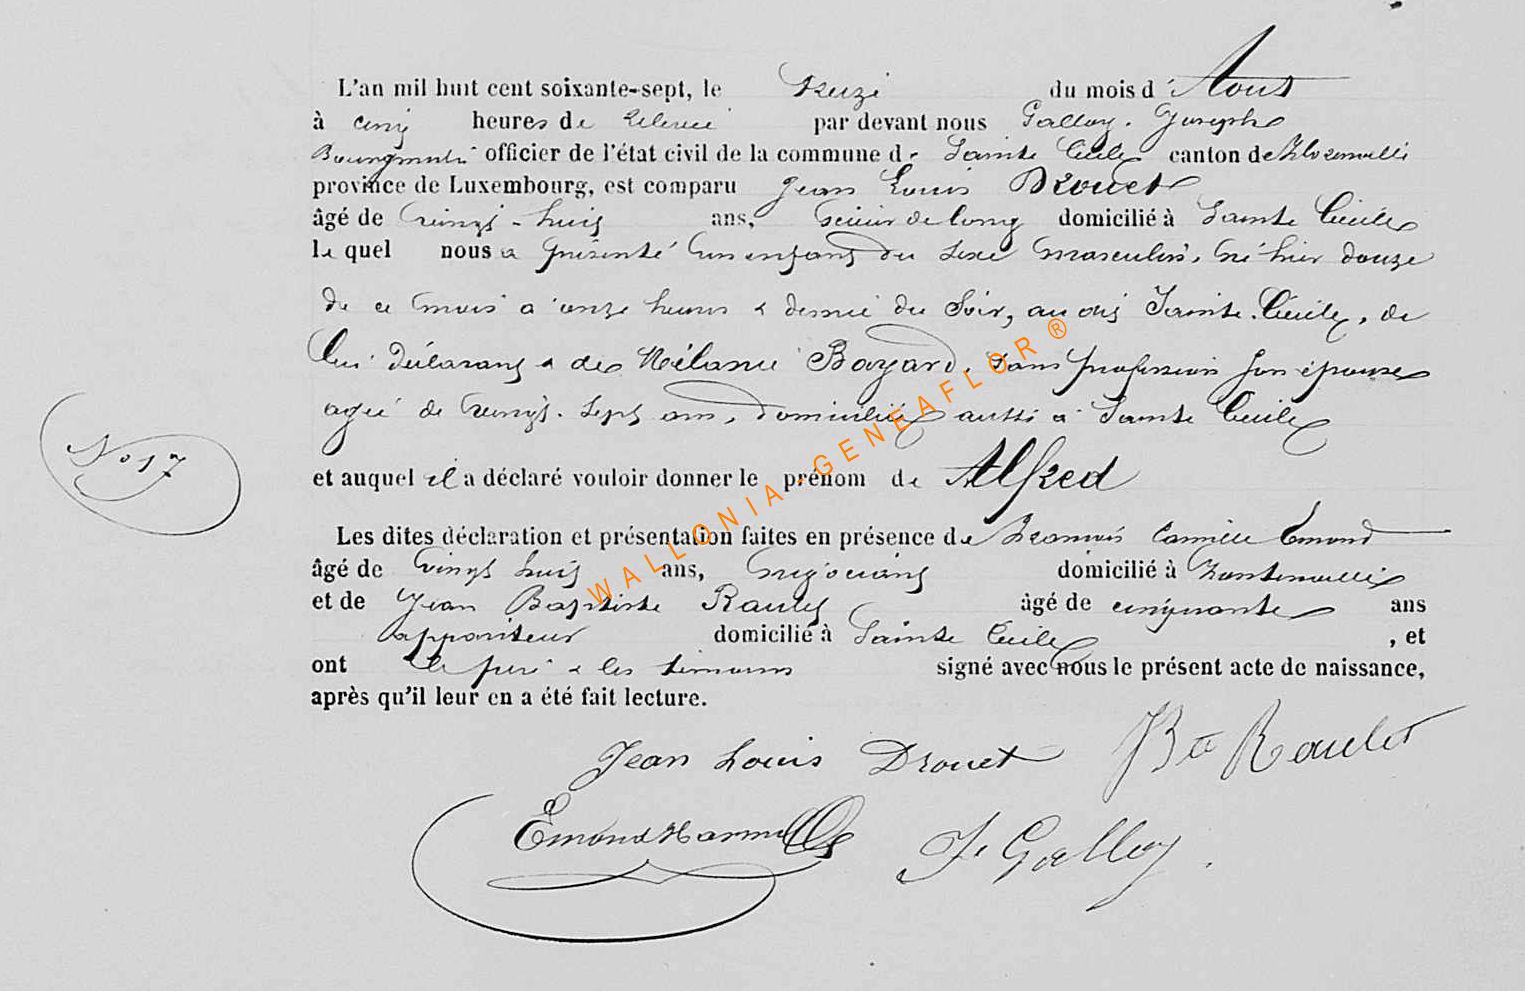 L'an mil huit cent soixante-sept, le treize du mois d'Aout
à cinq heures de relevée par devant nous Galloy Joseph
Bourgmestre officier de l'état civil de la commune de Sainte Cécile canton de Florenville
province de Luxembourg, est comparu Jean Louis Drouet
âgé de vingt-huit ans, scieur de long domicilié à Sainte Cécile
lequel nous a présenté un enfant du sexe masculin, né hier douze
de ce mois à onze heures & demie du soir, au dit Sainte Cécile, de
lui déclarant & de Mélanie Bayard, sans profession son épouse
agée de vingt-sept ans, domiciliée aussi à Sainte Cécile
N° 17
et auquel il a déclaré vouloir donner le prénom de Alfred
Les dites déclaration et présentation faites en présence de Camille Emond
âgé de vingt huit ans, négociant domicilié à Fontenoille
et de Jean Baptiste Raulet âgé de cinquante ans
appariteur domicilié à Sainte Cécile, et
ont le père & les témoins signé avec nous le présent acte de naissance,
après qu'il leur en a été fait lecture.
Jean Louis Drouet JBte Raulet
Emond J. Galloy
WALLONIA-GENEAFLOR ®